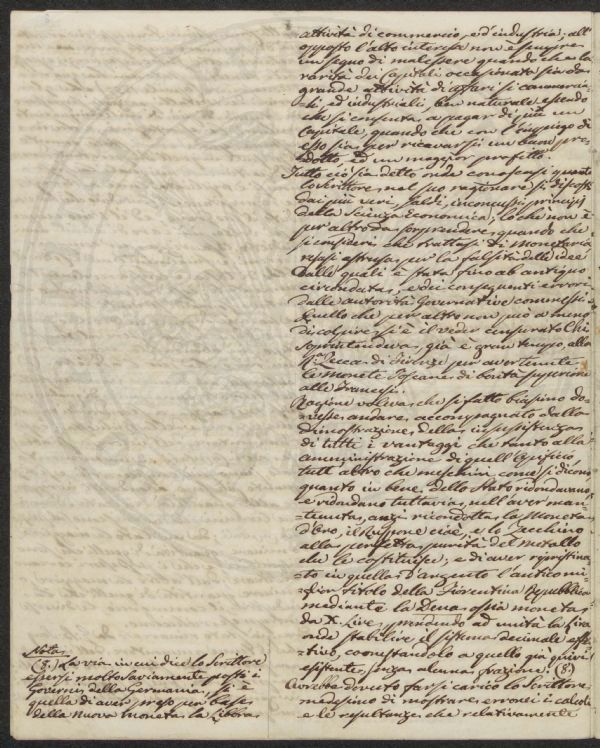 attività di commercio, e d'industria; all'
opposto l'alto interesse non è sempre
un segno di malessere quando che la
rarità dei Capitali occasionata sia da
grande attività di affari sì commercia-
-li, ed industriali, ben naturale essendo
che si consenta, a pagar di più un
Capitale, quando che con l'impiego di
esso sia per ricavarsi un buon pro-
dotto, ed un maggior profitto.
Tutto ciò sia detto onde conoscasi quanto
lo Scrittore nel suo ragionare si discosti
dai più veri, saldi, inconcussi principj
della Scienza Economica; lo che non è
per altro da sorprendere, quando che
si consideri che trattasi di Monetaria
resasi astrusa per la falsità delle idee
dalle quali è stata fino ab antiquo
circondata, e dei conseguenti errori
dalle autorità Governative commessi.
Quello che per altro non può a meno
di colpire si è il veder censurato Chi
Soprintendeva, già è gran tempo, alla
Ra. Zecca di Firenze per aver tenute
le Monete Toscane di bontà superiore
alle Francesi.
Ragione voleva che sì fatto biasimo do-
vesse andare accompagnato dalla
dimostrazione della insussistenza
di tutti i vantaggi che tanto alla
amministrazione di quell'Opificio
tutt'altro che meschini, come si dicono,
quanto in bene dello Stato ridondavano
e ridondano tuttavia, nell'aver man-
-tenuta, anzi ricondotta la Moneta
d'Oro, il Ruspone cioè, e lo Zecchino
alla perfetta purità del metallo
che le costituisce; e di aver ripristina-
-to in quella d'Argento l'antico mi-
-glior titolo della Fiorentina Repubblica
mediante la Dena ossia moneta
da X. Lire, prendendo ad unità la Lira
onde stabilire il sistema decimale effet-
-tivo, coonestandolo a quello già quivi
esistente, senza alcuna frazione. (8.)
Avrebbe dovuto farsi carico lo Scrittore
medesimo di mostrare erronei i calcoli
e le resultanze che relativamente
Nota
(8.) La via in cui dice lo Scrittore
essersi molto saviamente posti i
Governi della Germania, si è
quella di aver preso per base
della nuova moneta la Libbra